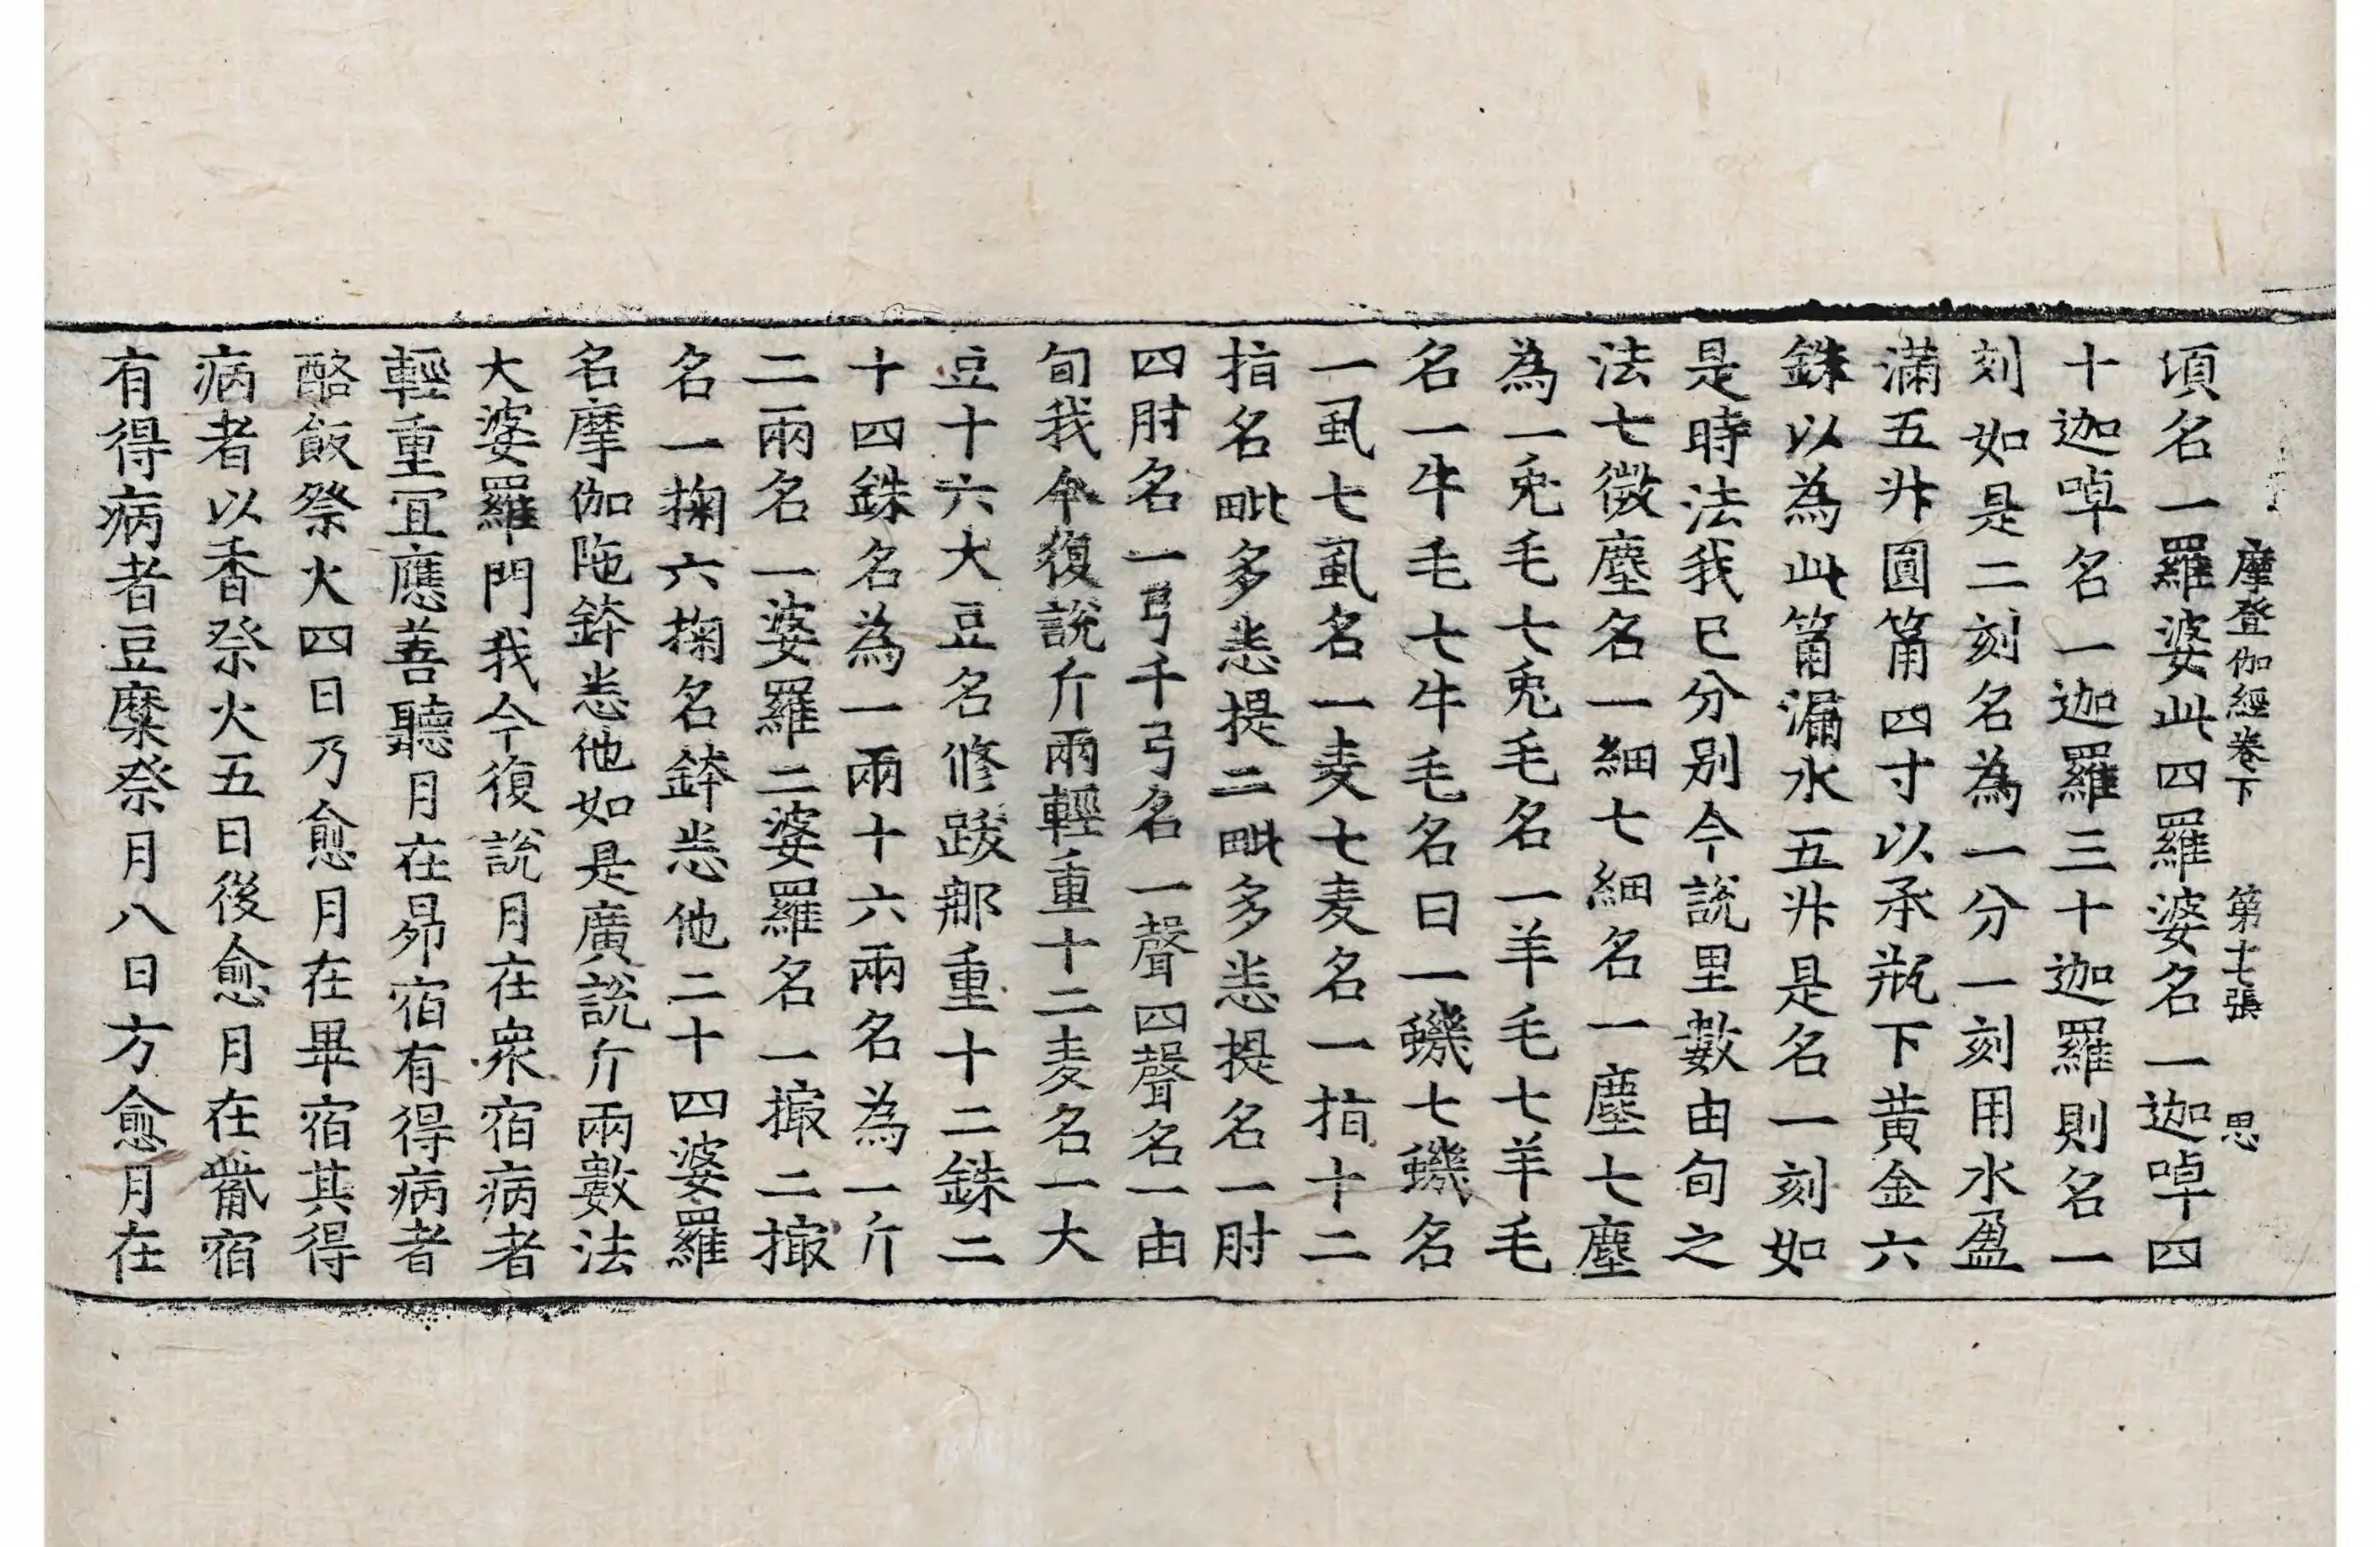 摩登伽經卷下　第十七張　思
項名一羅婆此四羅婆名一迦啅四
十迦啅名一迦羅三十迦羅則名一
刻如是二刻名為一分一刻用水盈
滿五升圓筩四寸以承瓶下黃金六
銖以為此筩漏水五升是名一刻如
是時法我已分別今說里數由旬之
法七微塵名一細七細名一塵七塵
為一兎毛七兎毛名一羊毛七羊毛
名一牛毛七牛毛名曰一蟣七蟣名
一虱七虱名一麦七麦名一指十二
指名毗多悉提二毗多悉提名一肘
四肘名一弓千弓名一聲四聲名一由
旬我今復說斤兩輕重十二麦名一大
豆十六大豆名修跋那重十二銖二
十四銖名為一兩十六兩名為一斤
二兩名一婆羅二婆羅名一撮二撮
名一掬六掬名鉢悉他二十四婆羅
名摩伽陁鉢悉他如是廣說斤兩數法
大婆羅門我今復說月在衆宿病者
輕重冝應善聽月在昴宿有得病者
酪飯祭火四日乃愈月在畢宿其得
病者以香祭火五日後愈月在觜宿
有得病者豆糜祭月八日方愈月在